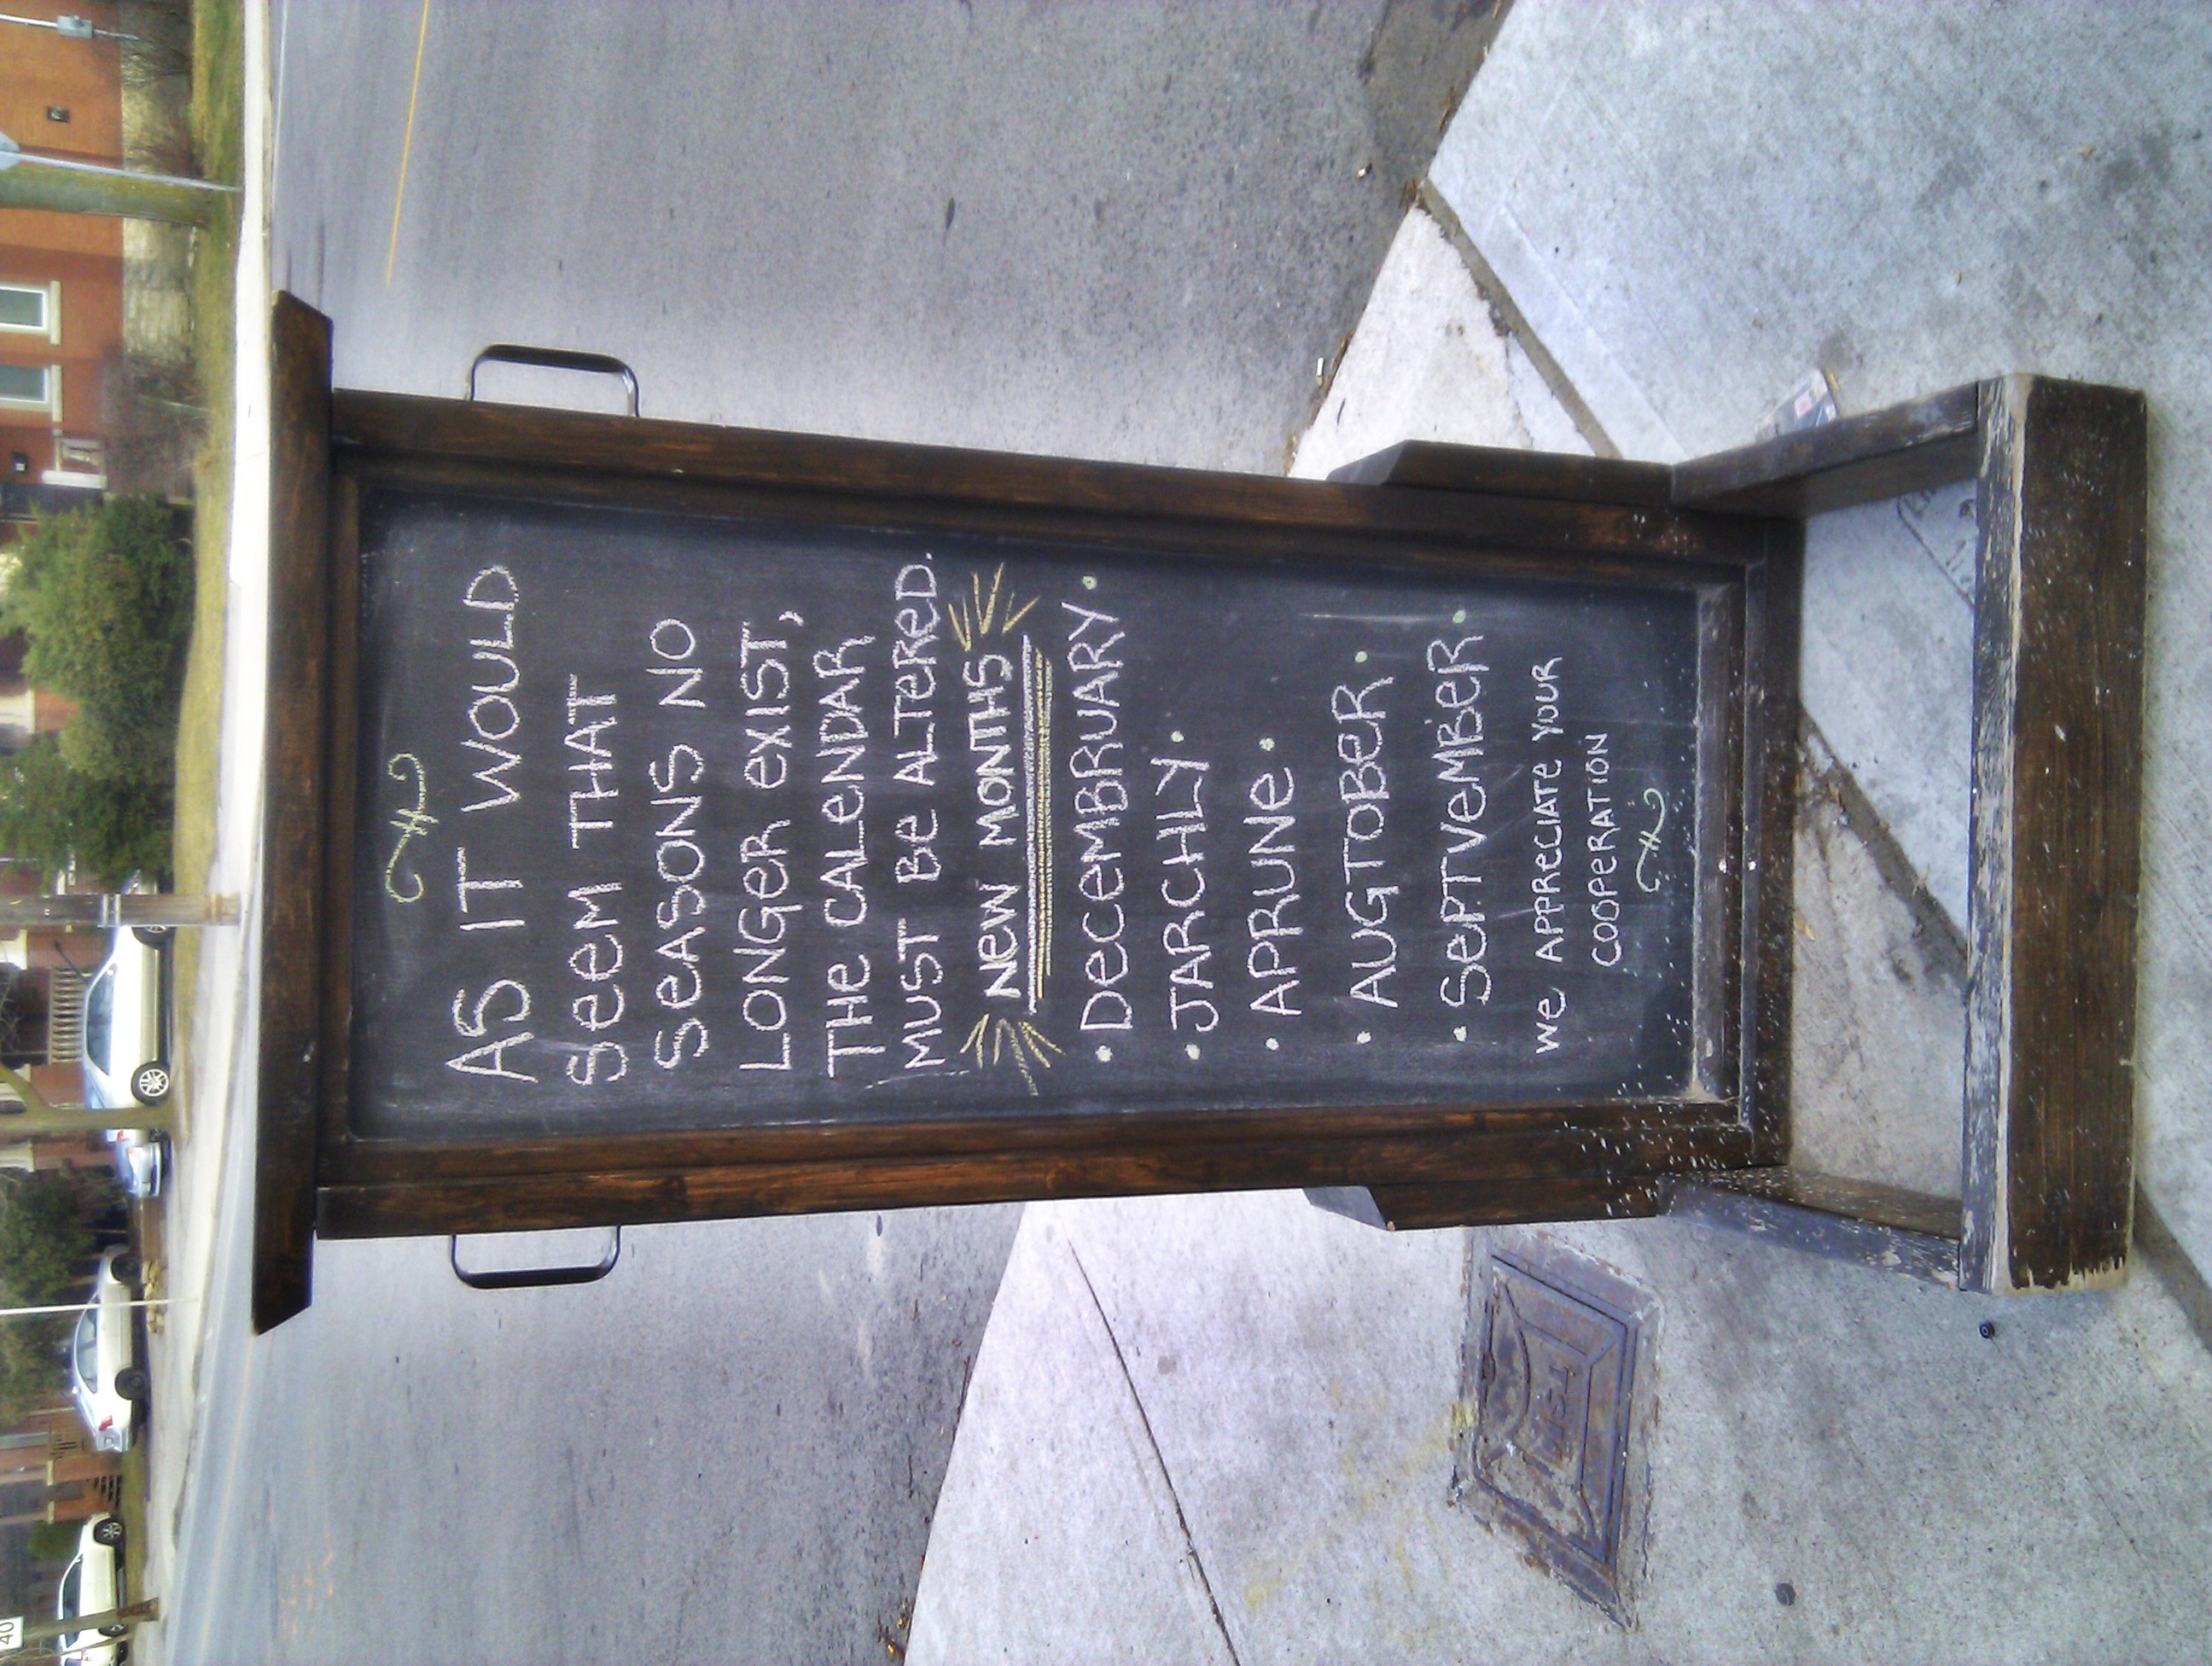 AS IT WOULD
SEEM THAT
SEASONS NO
LONGER EXIST,
THE CALENDAR
MUST BE ALTERED.
NEW MONTHS
• DECEMBRUARY •
• JARCHLY •
• APRUNE •
• AUGTOBER •
• SEPTVEMBER •
WE APPRECIATE YOUR
COOPERATION
40